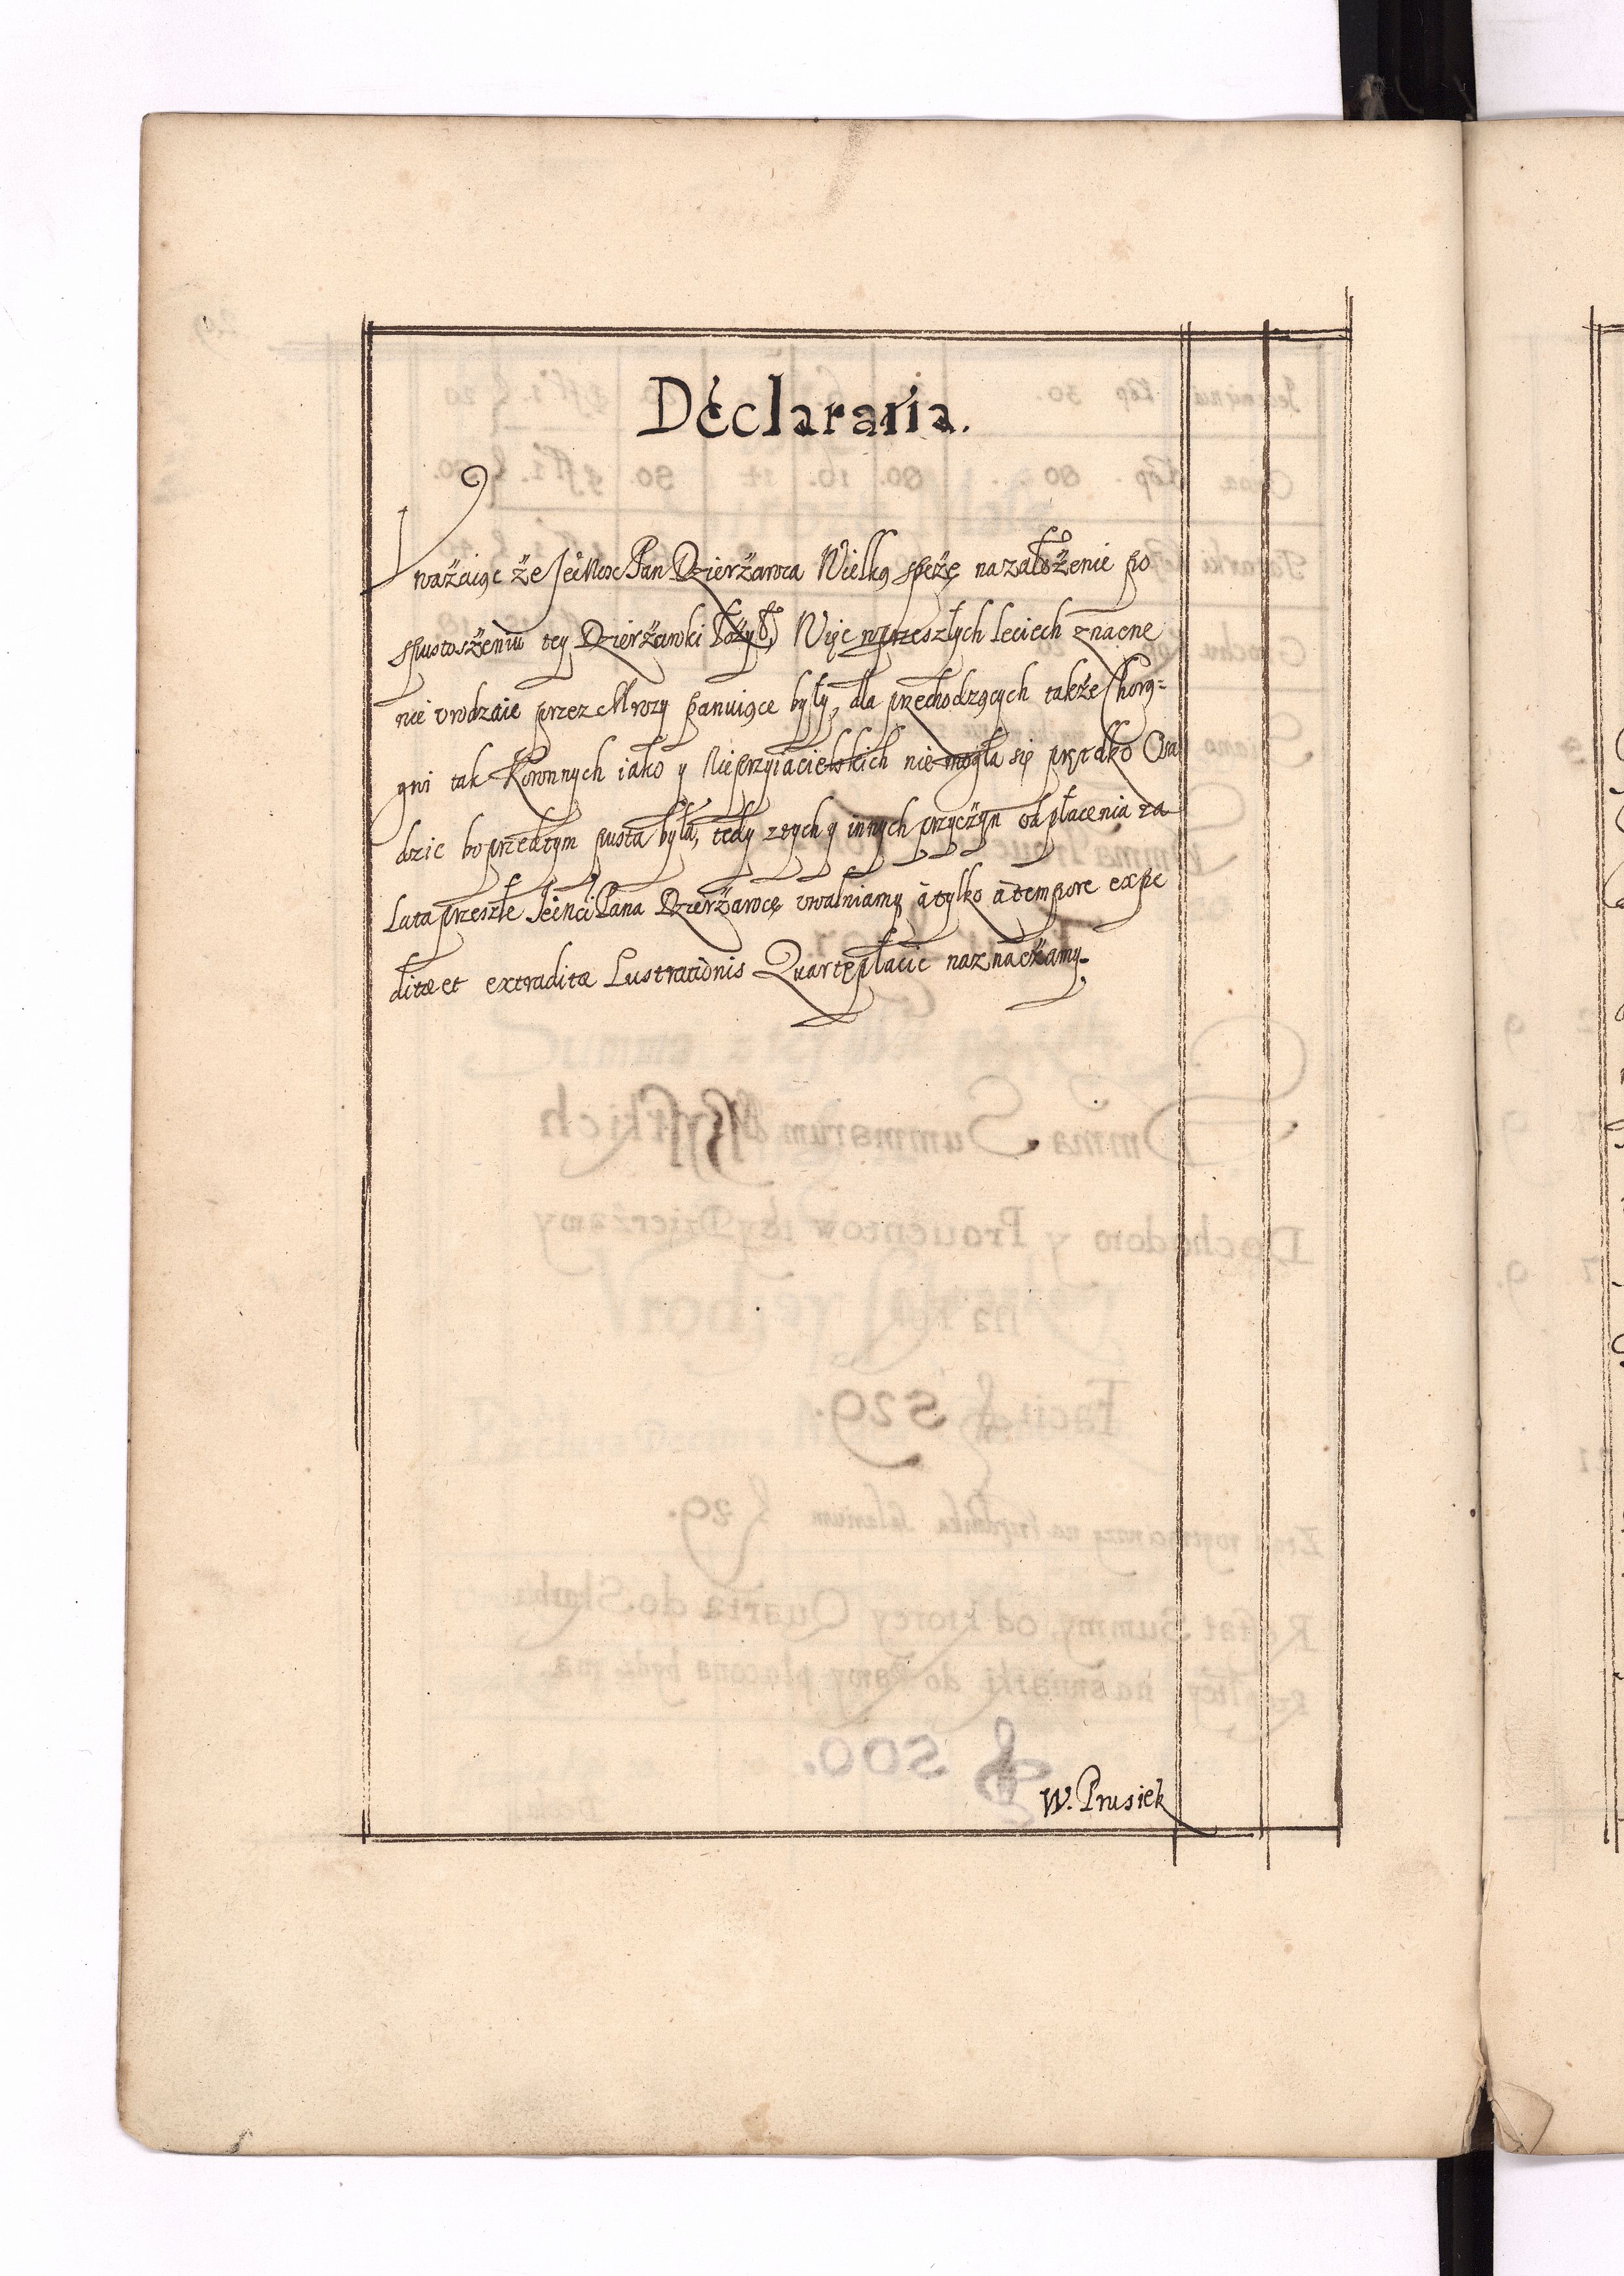 Declaratia.
Uważaiąc że Jeḿć Pan Dzierżawca Wielką spezę na założenie po
spustoszeniu tey Dzierżawki łożył, Więc wprzeszłych leciech znacne
nie vrodzaie przez Mrozy panuiące były, dla przechodzących także Chorą-
gwi tak Koronnych iako y Nieprzyiacielskich nie mogła się prętko Osa
dzic bo przedtym pusta była, tedy ztych y innych przyczyn od płacenia za
Lata przeszłe Jeḿci Pana Dzierżawcę vwalniamy á tylko à tempore expe
ditæ et extraditæ Lustrationis Quartę płacić naznaczamy.
W. Prusiek